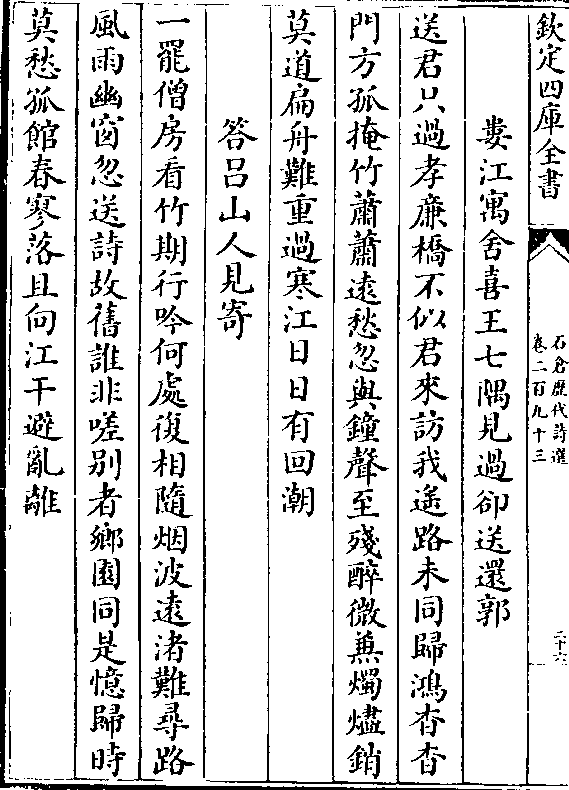 欽定四庫全書
石倉歷代詩選
卷二百九十三
二十六
婁江寓舍喜王七隅見過卻送還郭
送君只過孝廉橋不似君來訪我遙路未同歸鴻杳杳
門方孤掩竹蕭蕭遠愁忽與鐘聲至殘醉微兼燭燼銷
莫道扁舟難重過寒江日日有回潮
答呂山人見寄
一罷僧房看竹期行吟何處復相隨烟波遠渚難尋路
風雨幽窗忽送詩故舊誰非嗟别者鄉園同是憶歸時
莫愁孤館春寥落且向江干避亂離